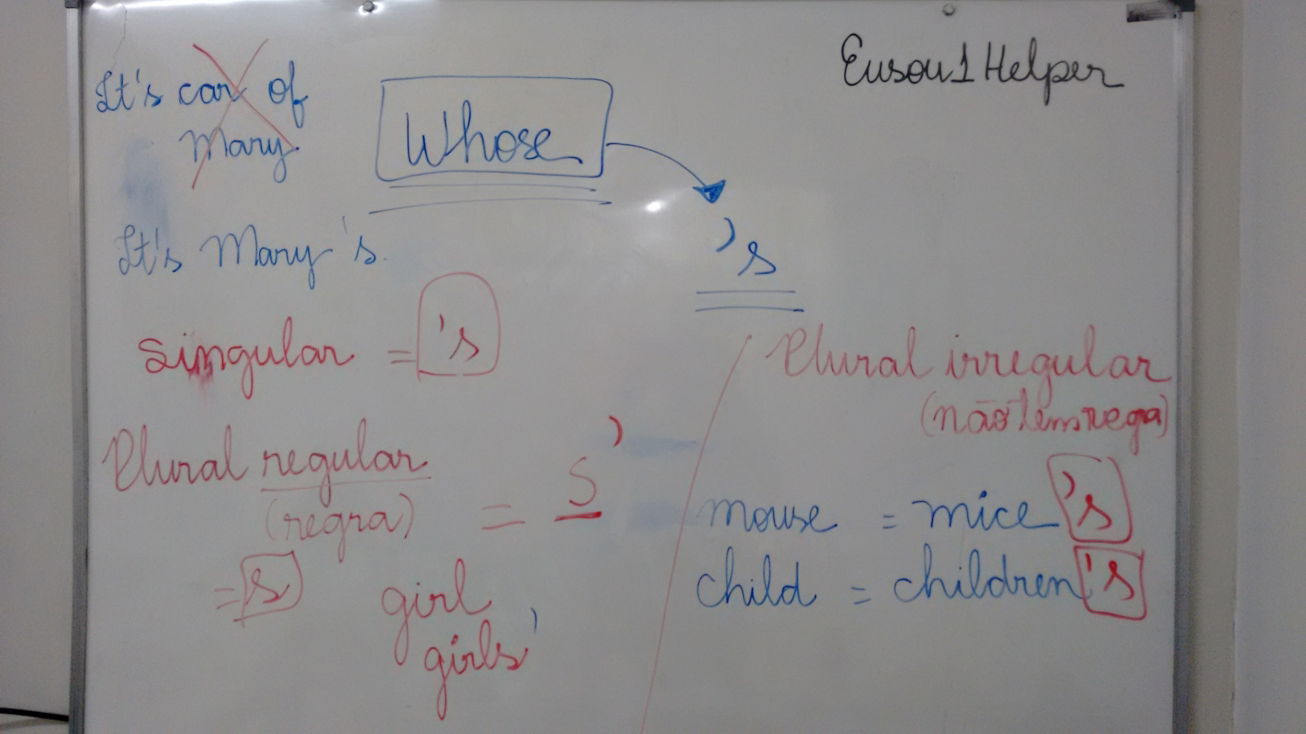 It's car of
Mary.
Whose
Eusou1Helper
's
It's Mary's.
Singular = 's
Plural regular
(regra) = s'
= s
girl
girls'
Plural irregular
(não tem rega)
mouse = mice's
child = children's